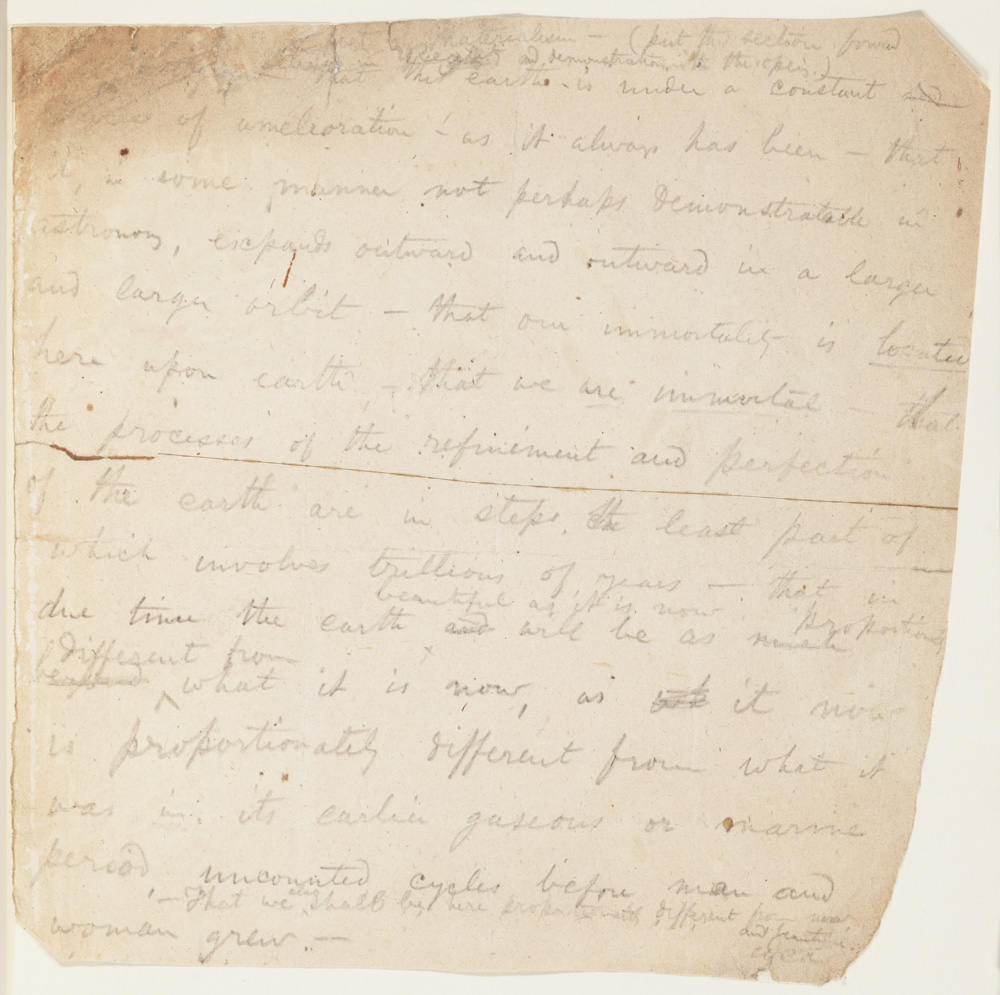 materialism — (put this section forward
and demonstration in the opens.)
that the earth is under a constant and
process of amelioration — as it always has been — that
it, in some manner not perhaps demonstratable in
astronomy, expands outward and outward in a larger
and larger orbit — that our immortality is located
here upon earth, — that we are immortal — that
the processes of the refinement and perfection
of the earth are in steps, the least part of
which involves trillions of years — that in
beautiful as it is now proportionately
due time the earth and will be as much
different from
beyond what it is now, as it now
is proportionately different from what it
was in its earlier gaseous or marine
period, uncounted cycles before man and
— That we also shall be here proportionately different from now
and beautiful.
woman grew. —